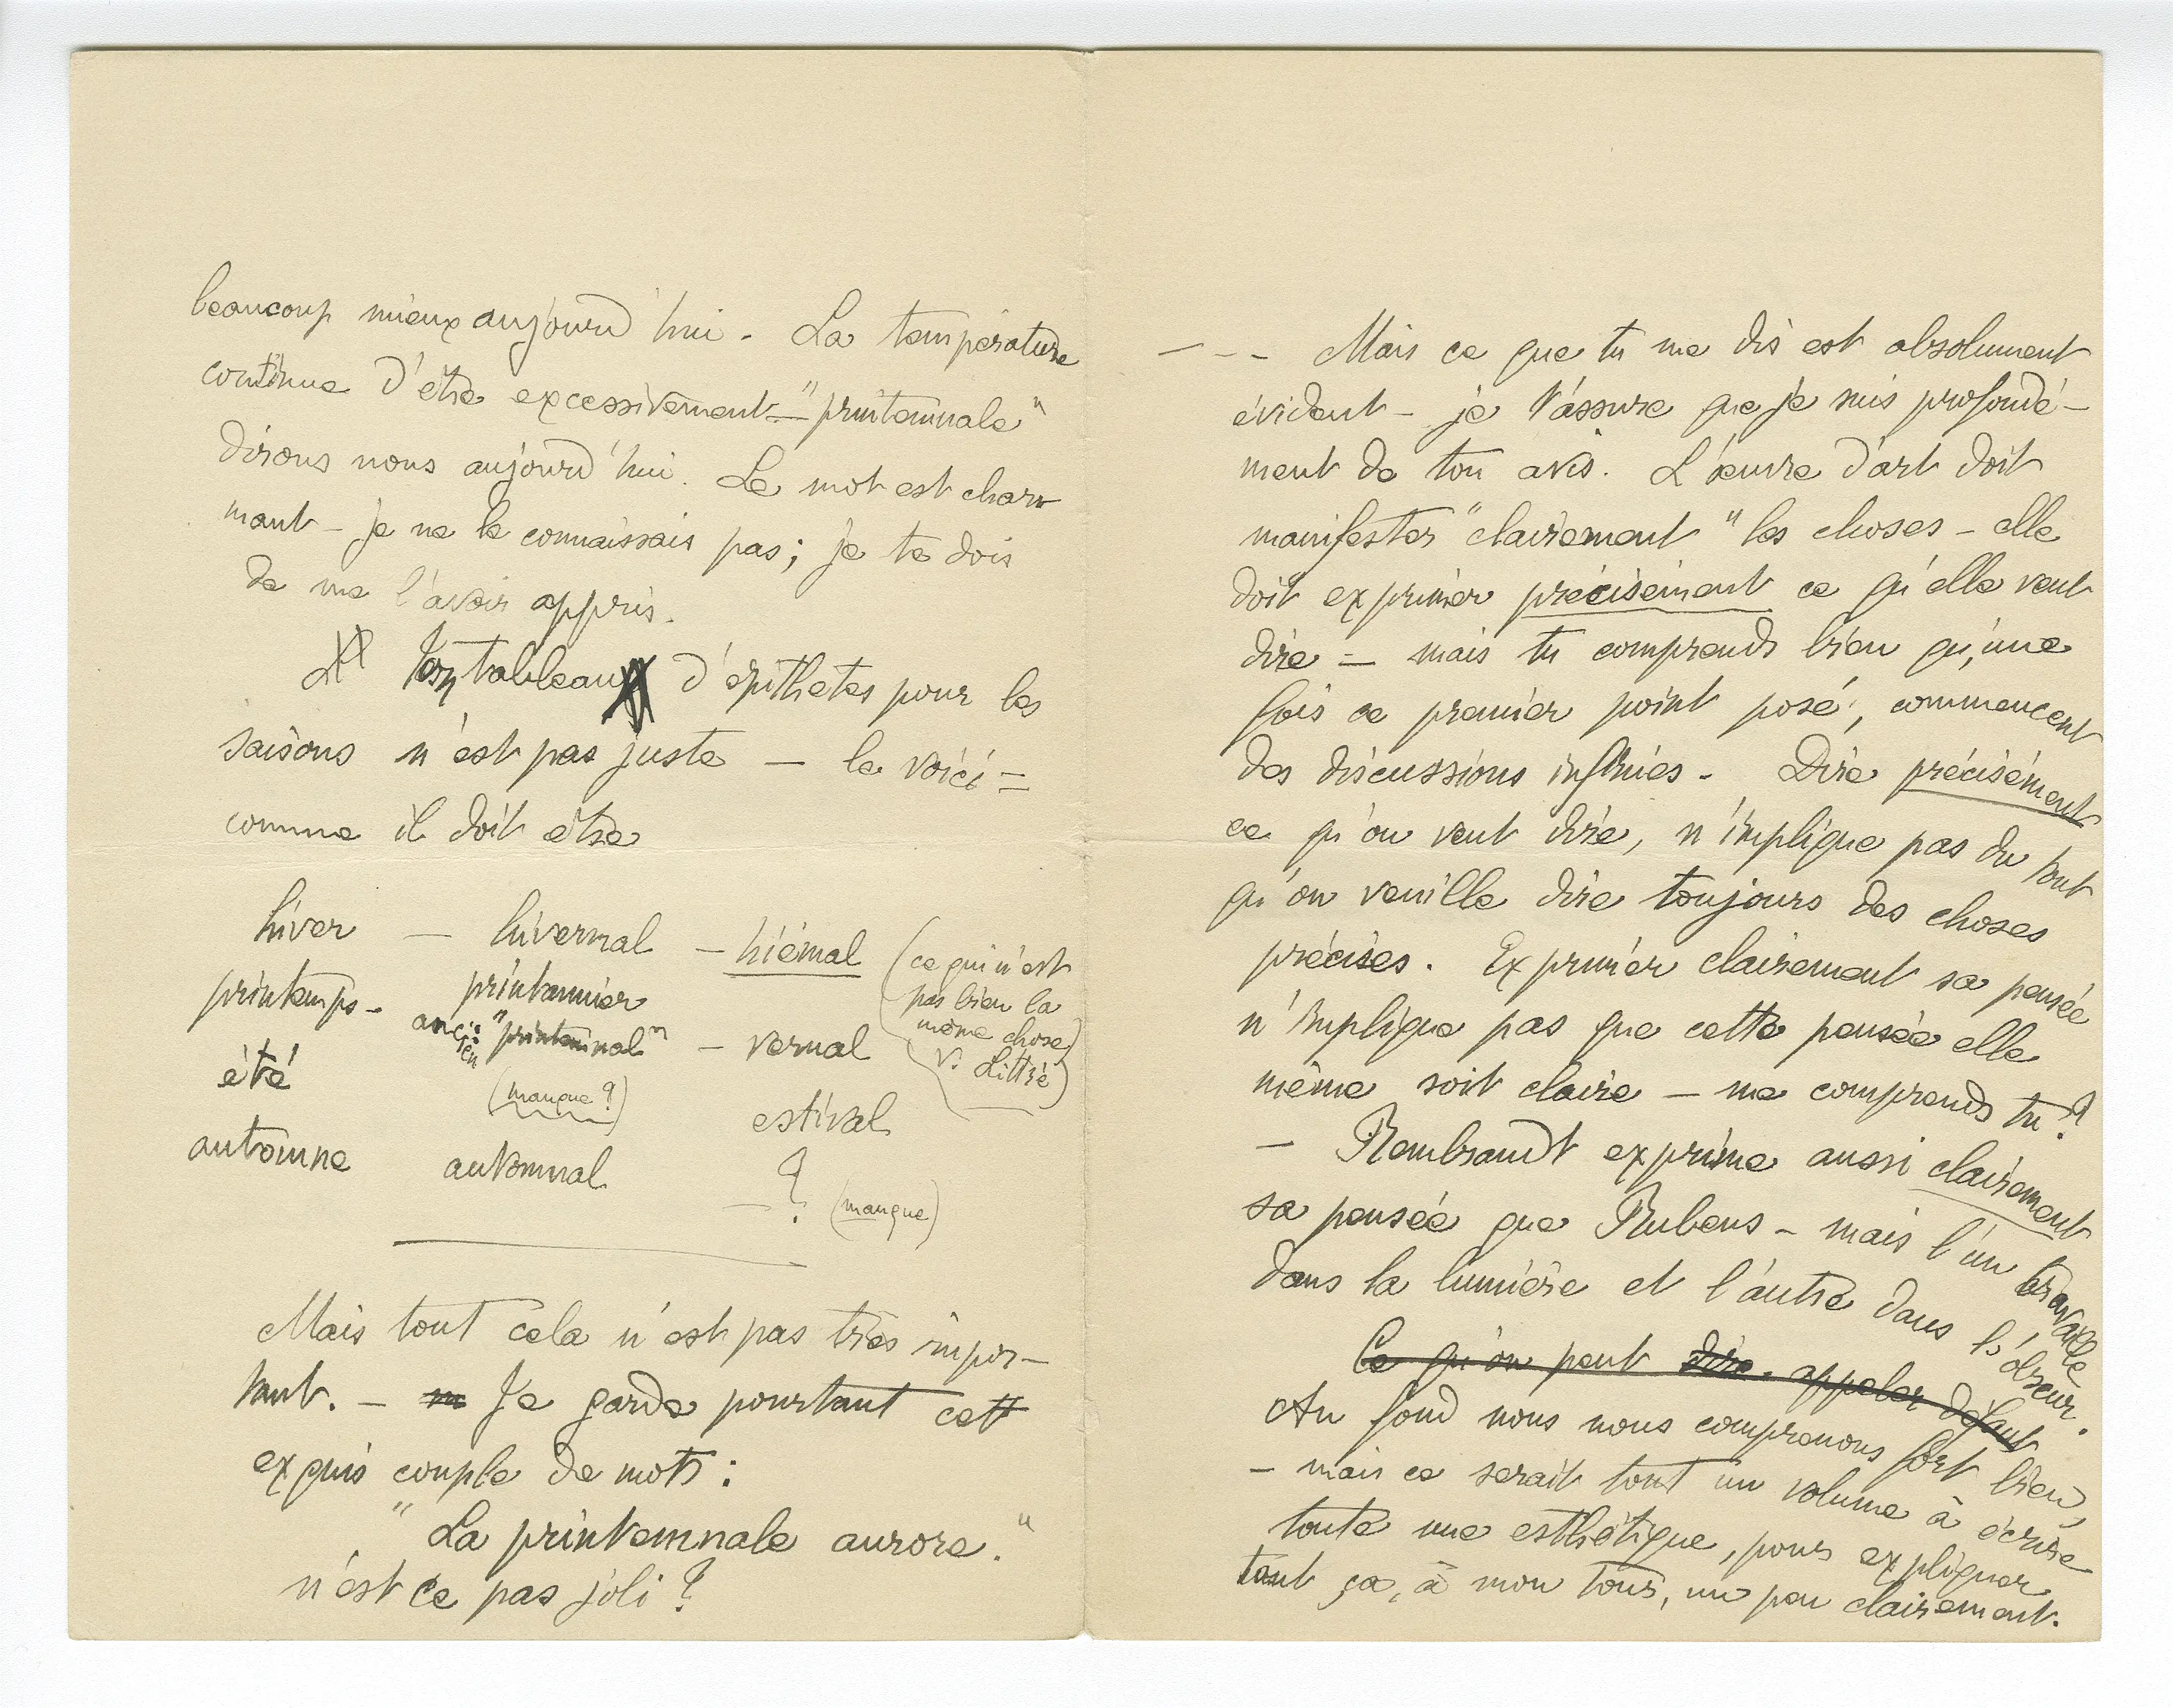 beaucoup mieux aujourd'hui. La température
continue d'être excessivement – "printemnale"
dirons nous aujourd'hui. Le mot est char-
mant – je ne le connaissais pas ; je te dois
de me l'avoir appris.
Ton tableau d'épithetes pour les
saisons n'est pas juste – le voici =
comme il doit être
hiver – hivernal – hiémal (ce qui n'est
pas bien la
même chose
v. Littré)
printemps – printannier
ancien "printemnal" – vernal
été (manque ?) estival
automne automnal – ? (manque)
Mais tout cela n'est pas très impor-
tant. – Je garde pourtant cett
exquis couple de mots :
" La printemnale aurore. "
n'est ce pas joli ?
– – – Mais ce que tu me dis est absolument
évident – je t'assure que je suis profondé-
ment de ton avis. L'œuvre d'art doit
manifester "clairement" les choses – elle
doit exprimer précisément ce qu'elle veut
dire – mais tu comprends bien qu'une
fois ce premier point posé, commencent
des discussions infinies – Dire précisément
ce qu'on veut dire, n'implique pas du tout
qu'on veuille dire toujours des choses
précises. Exprimer clairement sa pensée
n'implique pas que cette pensée elle
même soit claire – me comprends tu ?
– Rembrandt exprime aussi clairement
sa pensée que Rubens – mais l'un travaille
dans la lumière et l'autre dans l'obscur.
Ce qu'on peut dire. appeler défaut
Au fond nous nous comprenons fort bien,
– mais ce serait tout un volume à écrire
toute une esthétique, pour expliquer
tout ça, à mon tour, un peu clairement.